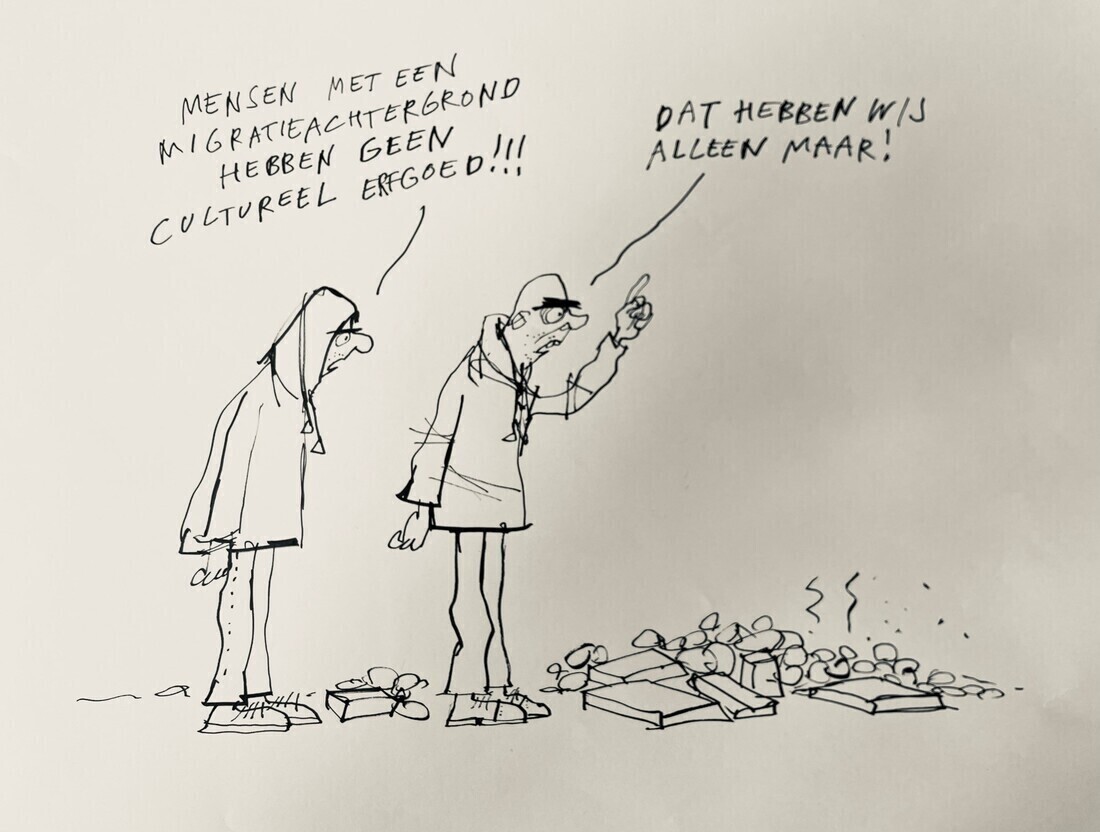 MENSEN MET EEN
MIGRATIEACHTERGROND
HEBBEN GEEN
CULTUREEL ERFGOED!!!
DAT HEBBEN WIJ
ALLEEN MAAR!